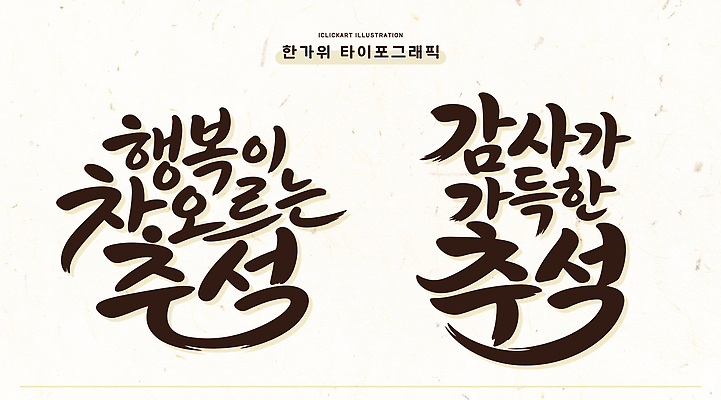 ICLICKART ILLUSTRATION
한가위 타이포그래픽
행복이
차오르는
추석
감사가
가득한
추석